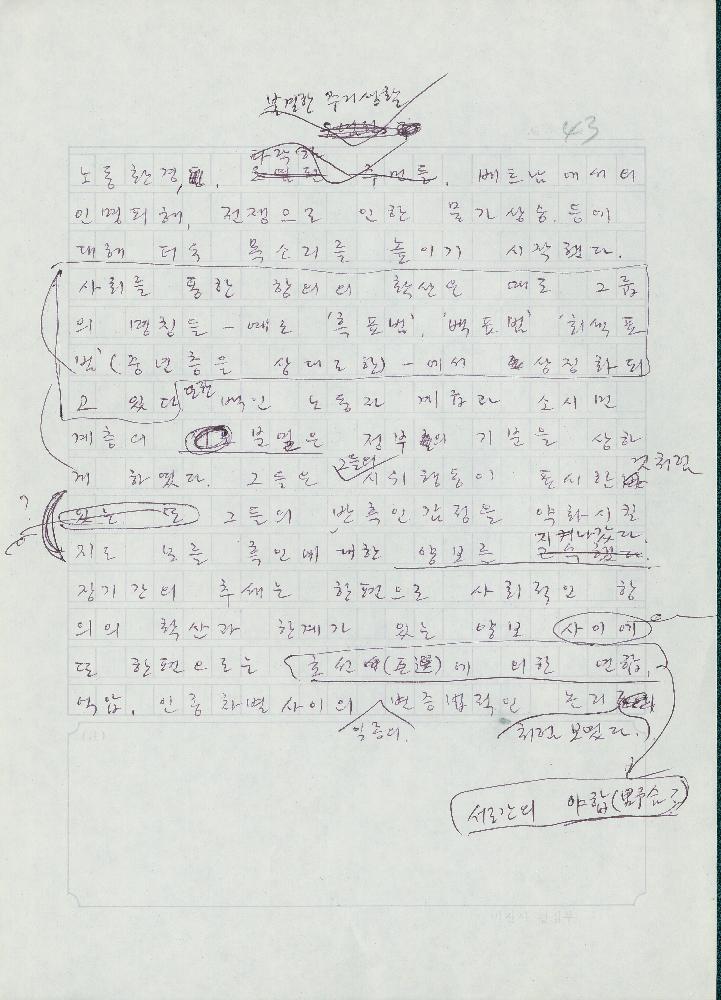 불결한 주거생활
43
다락한
노동환경, 주민들, 베트남에서의
인명피해, 전쟁으로 인한 물가상승 등에
대해 더욱 목소리를 높이기 시작했다.
사회를 통한 항의의 확산은 때로 그룹
의 명칭들 - 때로 '흑표범', '백표범' '회색표
범'(중년층을 상대로한) - 에서 상징화되
고 있다 또한 백인 노동자 계층과 소시민
계층의 분열은 정부의 기분을 상하
게 하였다. 그들은 그들의 시위행동이 표시한 것처럼
?
있는 또 그들의 반흑인감정을 약화시킬
지켜나갔다.
지도 모를 흑인에 대한 양보를 고수했다.
장기간의 추세는 한편으로 사회적인 항
의의 확산과 한계가 있는 양보 사이에
또 한편으로는 호선(互選)에 의한 연합,
억압, 인종차별 사이의 변증법적인 논리
일종의
처럼 보였다.
서로간의 야합(野合)